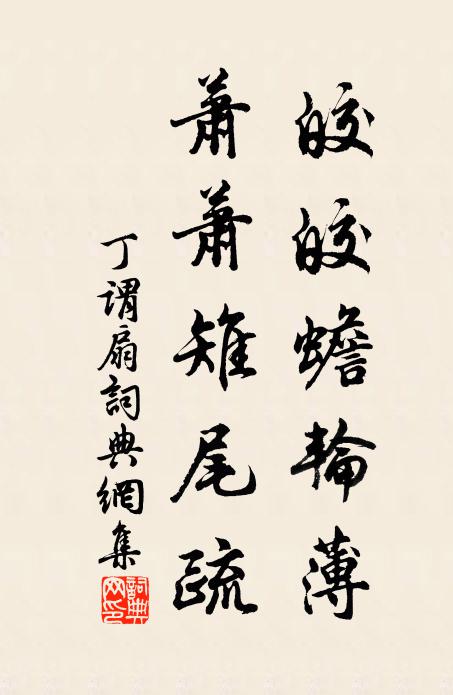 皎皎蟾輪薄
蕭蕭雉尾疏
丁謂扇詞典網集
詞典网印